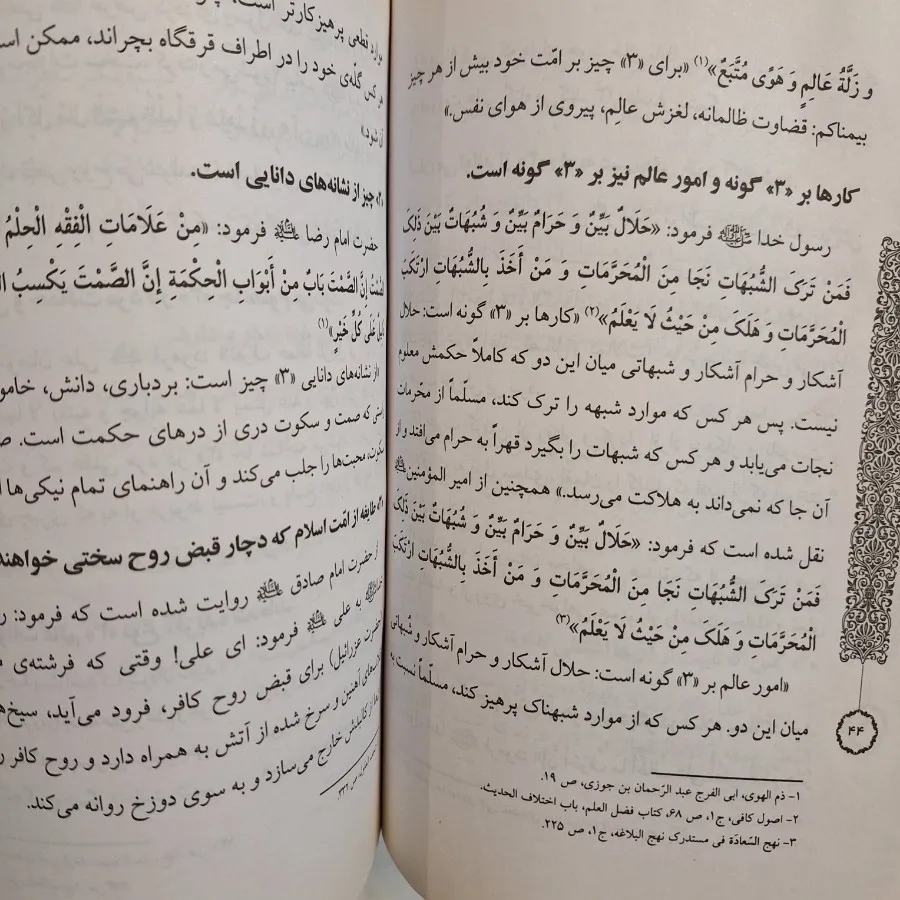 و زَلَّةُ عَالِمٍ وَ هَوًی مُتَّبَعٌ»(۱) «برای «۳» چیز بر امّت خود بیش از هر چیز
بیمناکم: قضاوت ظالمانه، لغزش عالِم، پیروی از هوای نفس.»
کارها بر «۳» گونه و امور عالم نیز بر «۳» گونه است.
رسول خدا ﷺ فرمود: «حَلَالٌ بَیِّنٌ وَ حَرَامٌ بَیِّنٌ وَ شُبُهَاتٌ بَیْنَ ذَلِکَ
فَمَنْ تَرَکَ الشُّبُهَاتِ نَجَا مِنَ الْمُحَرَّمَاتِ وَ مَنْ أَخَذَ بِالشُّبُهَاتِ ارْتَکَبَ
الْمُحَرَّمَاتِ وَ هَلَکَ مِنْ حَیْثُ لَا یَعْلَمُ»(۲) «کارها بر «۳» گونه است: حلال
آشکار و حرام آشکار و شبهاتی میان این دو که کاملاً حکمش معلوم
نیست. پس هر کس که موارد شبهه را ترک کند، مسلّماً از محرّمات
نجات می‌یابد و هر کس که شبهات را بگیرد قهراً به حرام می‌افتد و از
آن جا که نمی‌داند به هلاکت می‌رسد.» همچنین از امیر المؤمنین
نقل شده است که فرمود: «حَلَالٌ بَیِّنٌ وَ حَرَامٌ بَیِّنٌ وَ شُبُهَاتٌ بَیْنَ ذَلِکَ
فَمَنْ تَرَکَ الشُّبُهَاتِ نَجَا مِنَ الْمُحَرَّمَاتِ وَ مَنْ أَخَذَ بِالشُّبُهَاتِ ارْتَکَبَ
الْمُحَرَّمَاتِ وَ هَلَکَ مِنْ حَیْثُ لَا یَعْلَمُ»(۳)
«امور عالم بر «۳» گونه است: حلال آشکار و حرام آشکار و شبهاتی
میان این دو. هر کس که از موارد شبهناک پرهیز کند، مسلّماً نسبت به
۱- ذم الهوی، ابی الفرج عبد الرّحمان بن جوزی، ص ۱۹.
۲- اصول کافی، ج۱، ص ۶۸، کتاب فضل العلم، باب اختلاف الحدیث.
۳- نهج السّعادة فی مستدرک نهج البلاغه، ج۱، ص ۲۲۵.
۴۴
قطعی پرهیزکارتر است
هر کس گلّه‌ی خود را در اطراف قرقگاه بچراند، ممکن
آن شود.»
چیز از نشانه‌های دانایی است.
حضرت امام رضا فرمود: «مِنْ عَلَامَاتِ الْفِقْهِ الْحِلْمُ
إِنَّ الصَّمْتَ بَابٌ مِنْ أَبْوَابِ الْحِکْمَةِ إِنَّ الصَّمْتَ یَکْسِبُ
عَلَی کُلِّ خَیْرٍ»(۱)
«از نشانه‌های دانایی «۳» چیز است: بردباری، دانش،
که صمت و سکوت دری از درهای حکمت است.
سکوت، محبت‌ها را جلب می‌کند و آن راهنمای تمام نیکی‌ها
طایفه از امّت اسلام که دچار قبض روح سختی خواهند
از حضرت امام صادق روایت شده است که فرمود:
به علی فرمود: ای علی! وقتی که فرشته‌ی
(حضرت عزرائیل) برای قبض روح کافر، فرود می‌آید،
آهنین و سرخ شده از آتش به همراه دارد و روح کافر
خارج می‌سازد و به سوی دوزخ روانه می‌کند.